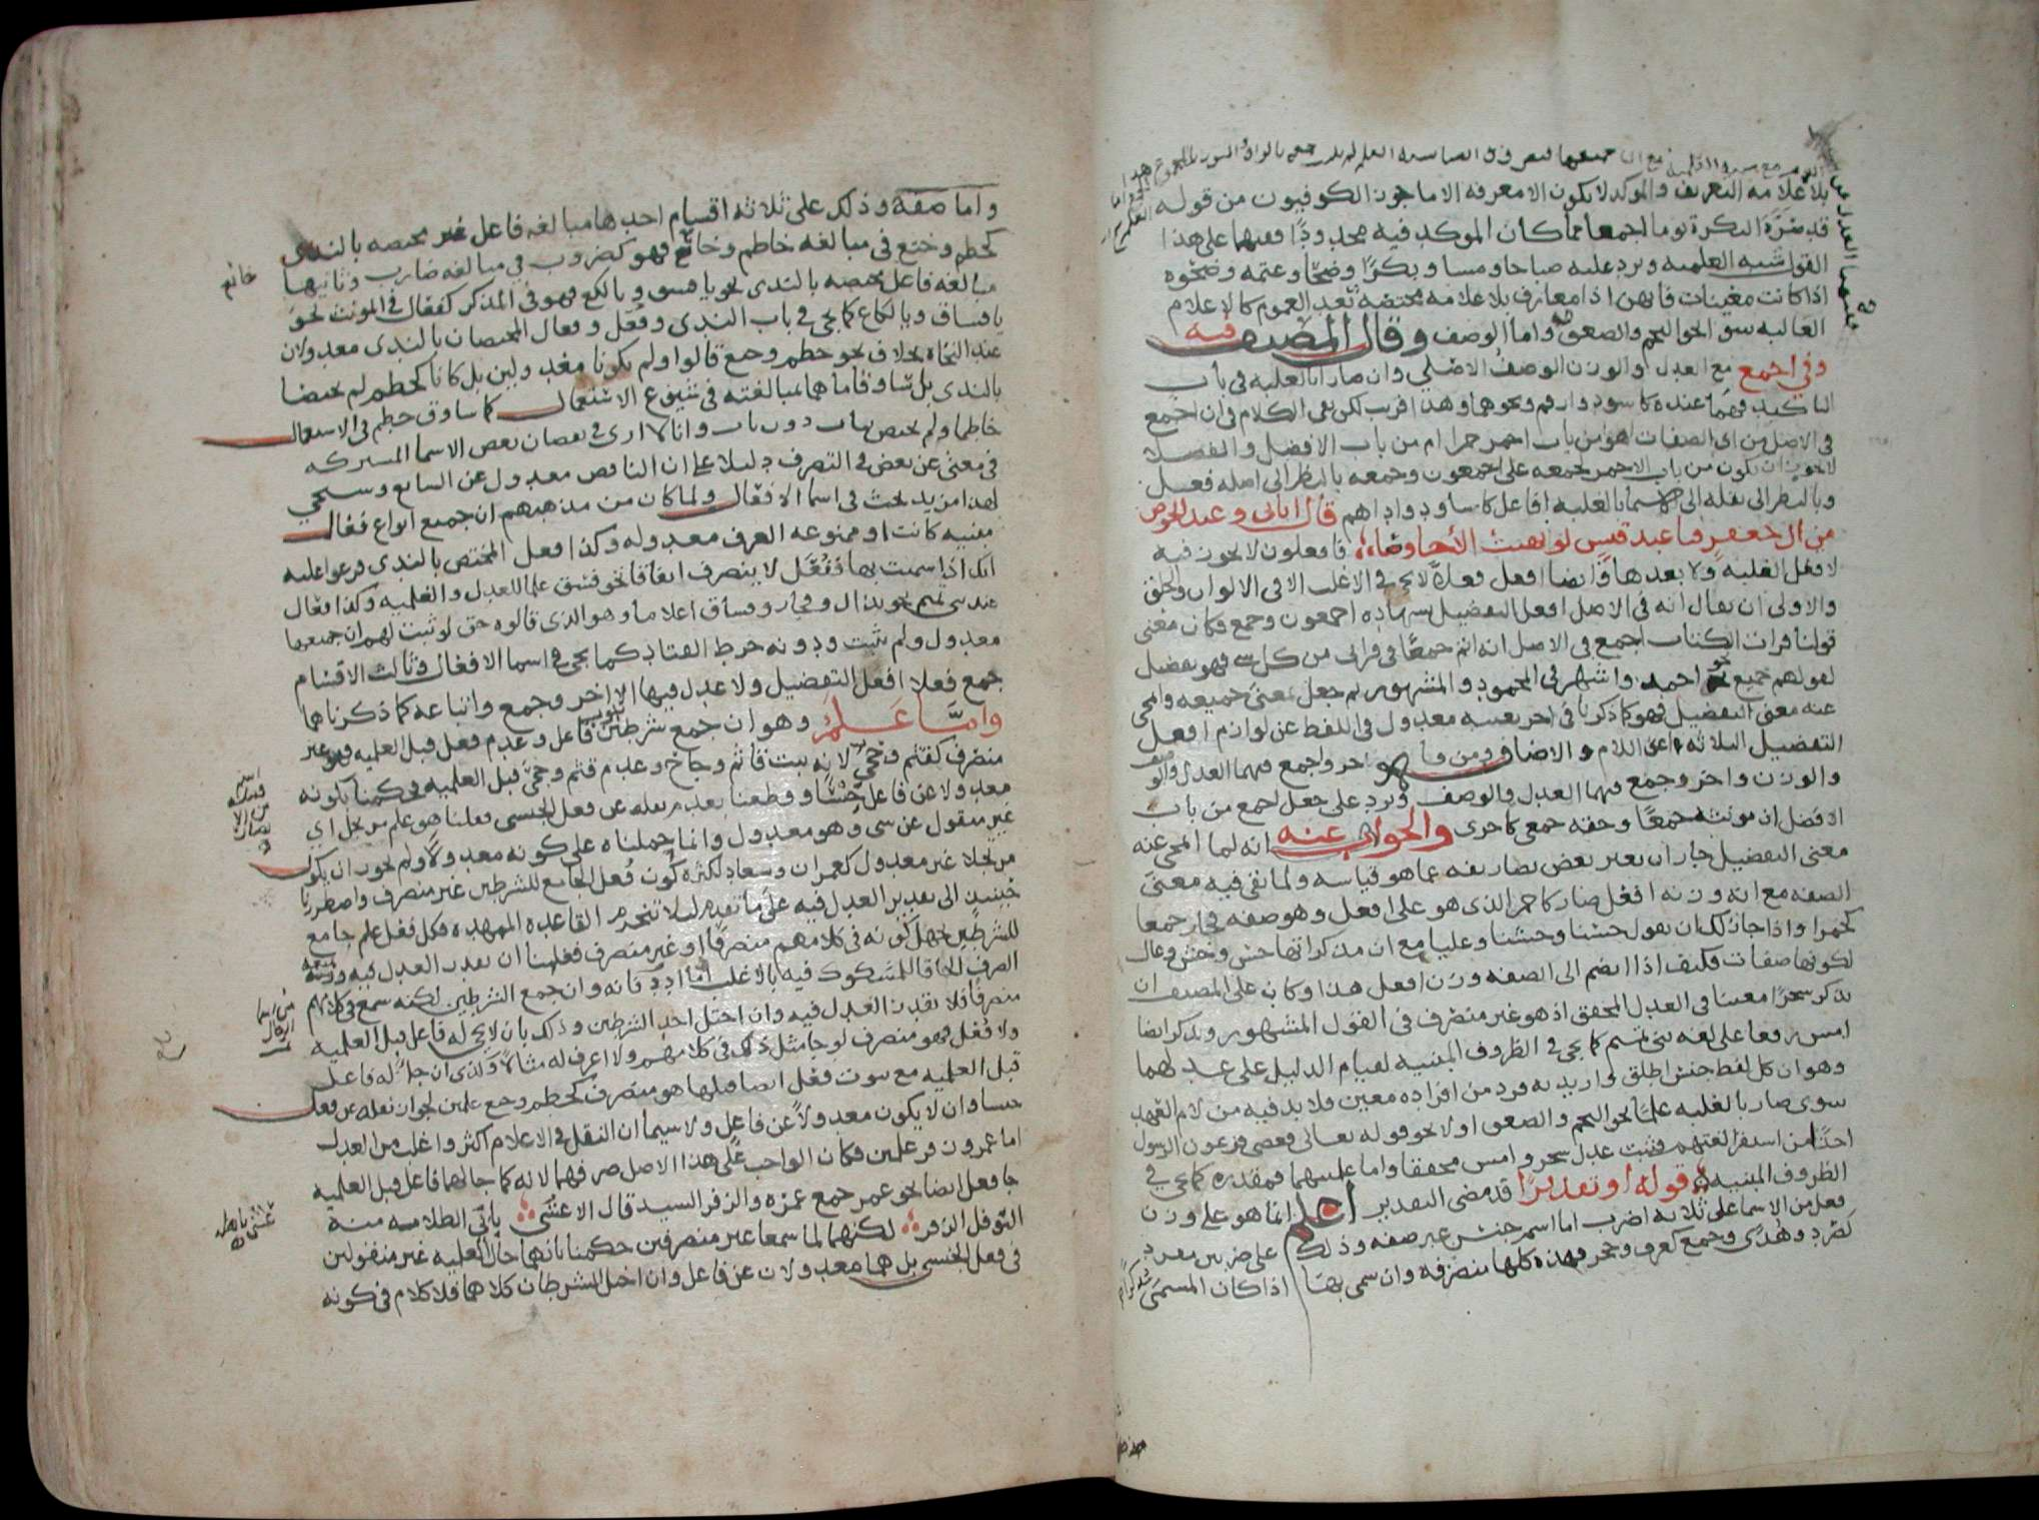 بلا علامه التعريف والموكد لا يكون الا معرفه الا ما جوز الكوفيون من قوله
قد صرت البكرة يوما اجمعا مما كان الموكد فيه محدودا ففيهما على هذا
القول شبه العلميه ويرد عليه صباحا ومساء وبكرا وضحا وعتمه وضحوه
اذا كانت معينات فانهن اذا معارف بلا علامه مختصه بعد العموم كالاعلام
الغالبه سوا نحو النجم والصعق واما الوصف وقال المصنف فيه
وفي اجمع مع العدل او الوزن الوصف الاصلي وان صار بالغلبه في باب
التاكيد فهما عنده كاسود وارقم ونحوهما وهذا قريب لكن بقي الكلام في ان اجمع
في الاصل من اي الصفات اهو من باب احمر حمرا ام من باب الافضل والفضلى
لا يجوز ان يكون من باب الاحمر لجمعه على اجمعون وجمعه بالنظر الى اصله فعل
وبالنظر الى نقله الى الاسما بالغلبه افاعل كاساود واداهم قال اتاني وعيد الحوص
من ال جعفر فيا عبد قيس لو نهيت الاحاوصا فافعلون لا يجوز فيه
لا قبل الغلبه ولا بعدها وايضا افعل فعلا لا يجي في الاغلب الا في الالوان والخلق
والاولى ان يقال انه في الاصل افعل التفضيل بشهاده اجمعون وجمع فكان معنى
قولنا قرات الكتاب اجمع في الاصل انه اتم جمعا في قراتي من كل شي فهو تفضيل
لقولهم جميع نحو احمد واشهر في المحمود والمشهور ثم جعل بمعنى جميعه وانمحى
عنه معنى التفضيل فهو كما ذكرنا في اخر بعينه معدول في اللفظ عن لوازم افعل
التفضيل الثلاثه اعني اللام والاضافه ومن فاخر واجمع فيهما العدل والوصف
والوزن واخر وجمع فيهما العدل والوصف ويرد على جعل اجمع من باب
الافضل ان مونثه جمعا وحقه جمعى كاخرى والجواب عنه انه لما انمحى عنه
معنى التفضيل جاز ان يغير بعض تصاريفه عما هو قياسه ولما بقي فيه معنى
الصفه مع انه وزنه افعل صار كاحمر الذي هو على افعل وهو صفه فجاز جمعا
كحمرا واذا جاز لك ان تقول حسنا وخشنا وعليا مع ان مذكراتها حسن وخشن وعال
لكونها صفات فكيف اذا انضم الى الصفه وزن افعل هذا وكان على المصنف ان
يذكر سحرا معينا في العدل المحقق اذ هو غير منصرف في القول المشهور ويذكر ايضا
امس رفعا على لغه بني تميم كما يجي في الظروف المبنيه لقيام الدليل على عدلهما
وهو ان كل لفظ جنس اطلق واريد به فرد من افراده معين فلا بد فيه من لام العهد
سوى صار بالغلبه علما نحو النجم والصعق او لا نحو قوله تعالى فعصى فرعون الرسول
اخذا من استقرا لغتهم فثبت عدل سحر وامس محققا واما علميتهما فمقدره كما يجي في
الظروف المبنيه قوله او تقديرا قد مضى التقدير اعلم انما هو على وزن
فعل من الاسما على ثلاثه اضرب اما اسم جنس غير صفه وذلك على ضربين مفرد
كصرد وهدى وجمع كغرف وحجر فهذه كلها منصرفه وان سمى بها اذا كان المسمى
واما صفه وذلك على ثلاثه اقسام احدها مبالغه فاعل غير مختصه بالندى
كحطم وختع في مبالغه حاطم وخاتع فهو كضروب في مبالغه ضارب وثانيها
مبالغه فاعل مختصه بالندى نحو يا فسق ويا لكع فهو في المذكر كفعال في المونث نحو
يا فساق ويا لكاع كما يجي في باب الندى وفعل وفعال المختصان بالندى معدولان
عند النحاه بخلاف نحو حطم وختع قالوا ولم يكونا معدولين بل كانا كحطم لم يختصا
بالندى بل ساوقا ما هما لمبالغته في شيوع الاستعمال كما ساوق حطم في الاستعمال
حاطما ولم يختص بباب دون باب وانا لا ارى في نقصان بعض الاسما المشتركه
في معنى عن بعض في التصرف دليلا على ان الناقص معدول عن السايع وسيجي
لهذا مزيد بحث في اسما الافعال ولما كان من مذهبهم ان جميع انواع فعال
مبنيه كانت او ممنوعه الصرف معدوله وكذا فعل المختص بالندى فرعوا عليه
انك اذا سميت بها ففعل لا ينصرف اتفاقا نحو فسق علما للعدل والعلميه وكذا فعال
عند بني تميم نحو نزال وفجار وفساق اعلاما وهو الذي قالوه حق لو ثبت لهم ان جميعها
معدول ولم يثبت ودونه خرط القتاد كما يجي في اسما الافعال وثالث الاقسام
جمع فعلا افعل التفضيل ولا عدل فيها الا اخر وجمع واتباعه كما ذكرناهما
واما علم وهو ان جمع شرطين ثبوت فاعل وعدم فعل قبل العلميه فهو غير
منصرف كقثم وجحى لانه ثبت قاثم وجاح وعدم قثم وجحى قبل العلميه فحكمنا بكونه
معدولا عن فاعل جنسا وقطعنا بعدم نقله عن فعل الجنسي فقلنا هو علم مرتجل اي
غير منقول عن شي وهو معدول وانما حملناه على كونه معدولا ولم نجوز ان يكون
مرتجلا غير معدول كعمران وسعاد لكثره كون فعل الجامع للشرطين غير منصرف واضطررنا
حينيذ الى تقدير العدل فيه على ما تقدم ليلا تنخرم القاعده الممهده فكل فعل علم جامع
للشرطين جهل كونه في كلامهم منصرفا او غير منصرف فعلينا ان نقدر العدل فيه ونمنعه
الصرف الحاقا للمشكوك فيه بالاغلب واما ادد فانه وان جمع الشرطين لكنه سمع في كلامهم
منصرفا فلا نقدر العدل فيه وان اختل احد الشرطين وذلك بان لا يجي له فاعل قبل العلميه
ولا فعل فهو منصرف لو جا مثل ذلك في كلامهم ولا اعرف له مثالا وكذى ان جا له فاعل
قبل العلميه مع ثبوت فعل ايضا قبلها هو منصرف كحطم وختع علمين لجواز نقله عن فعل
جنسا وان لا يكون معدولا عن فاعل ولا سيما ان النقل في الاعلام اكثر واغلب من العدل
اما عمر وزفر علمين فكان الواجب على هذا الاصل صرفهما لانه كما جا لهما فاعل قبل العلميه
جا فعل ايضا نحو عمر جمع عمره والزفر السيد قال الاعشى يابى الظلامه منه
النوفل الزفر لكنهما لما سمعا غير منصرفين حكمنا بانهما حال العلميه غير منقولين
عن فعل الجنسي بل هما معدولان عن فاعل وان اختل الشرطان كلاهما فلا كلام في كونه